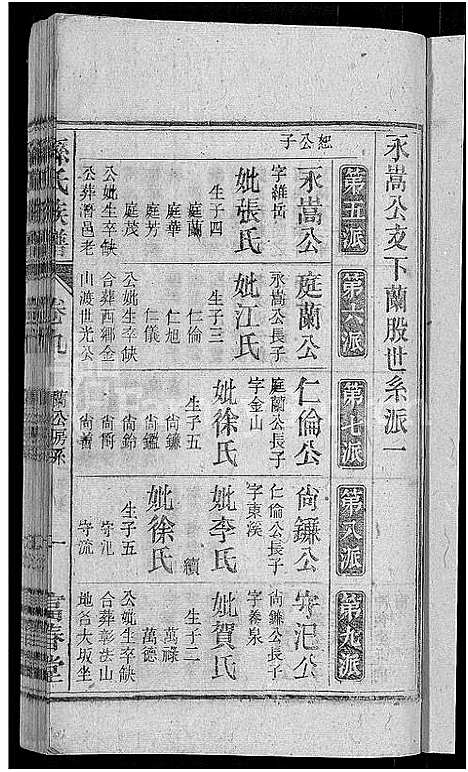 永嵩公支下蘭股世系派一
第五派
恕公子
永嵩公
字維岳
妣張氏
生子四
庭蘭
庭華
庭茂
公妣生卒缺
公葬潛邑老
第六派
庭蘭公
永嵩公長子
妣江氏
生子三
仁倫
仁旭
仁儀
公妣生卒缺
合葬西鄉金
山渡世光公
第七派
仁倫公
庭蘭公長子
字金山
妣徐氏
生子五
尙鐮
尙鑑
尙鈴
尙善
第八派
尙鐮公
仁倫公長子
字東溪
妣李氏
續
妣徐氏
生子五
守汜
守流
第九派
守汜公
尙鐮公長子
字養泉
妣賀氏
生子二
萬祿
萬德
公妣生卒缺
合葬彰法山
地名大坂坐
孫氏族譜
卷九
蘭公房系
一
富春堂